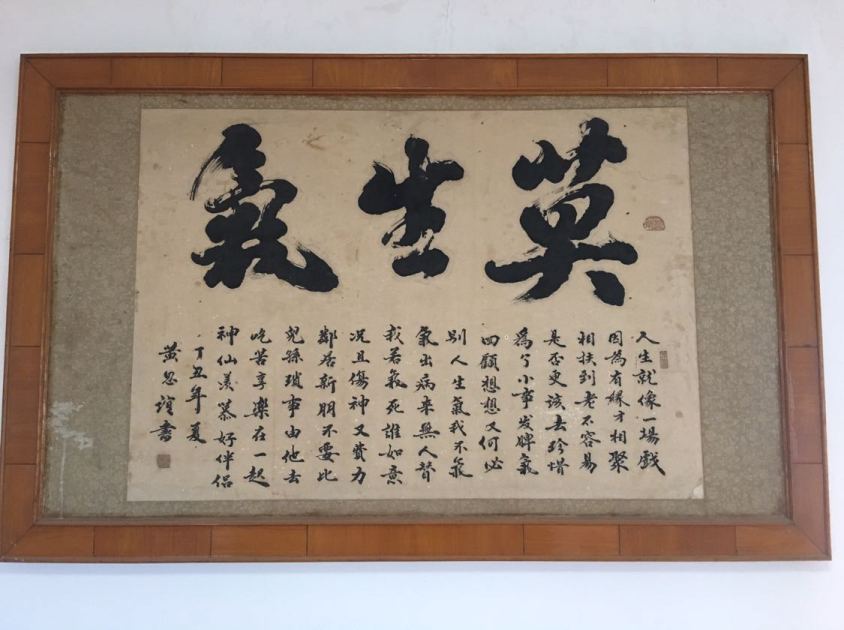 莫生氣
人生就像一場戲
因為有緣才相聚
相扶到老不容易
是否更該去珍惜
為了小事发脾氣
回顧想想又何必
別人生氣我不氣
氣出病來無人替
我若氣死誰如意
況且傷神又費力
鄰居新朋不要比
兒孫瑣事由他去
吃苦享樂在一起
神仙羨慕好伴侶
丁丑年夏
黄書